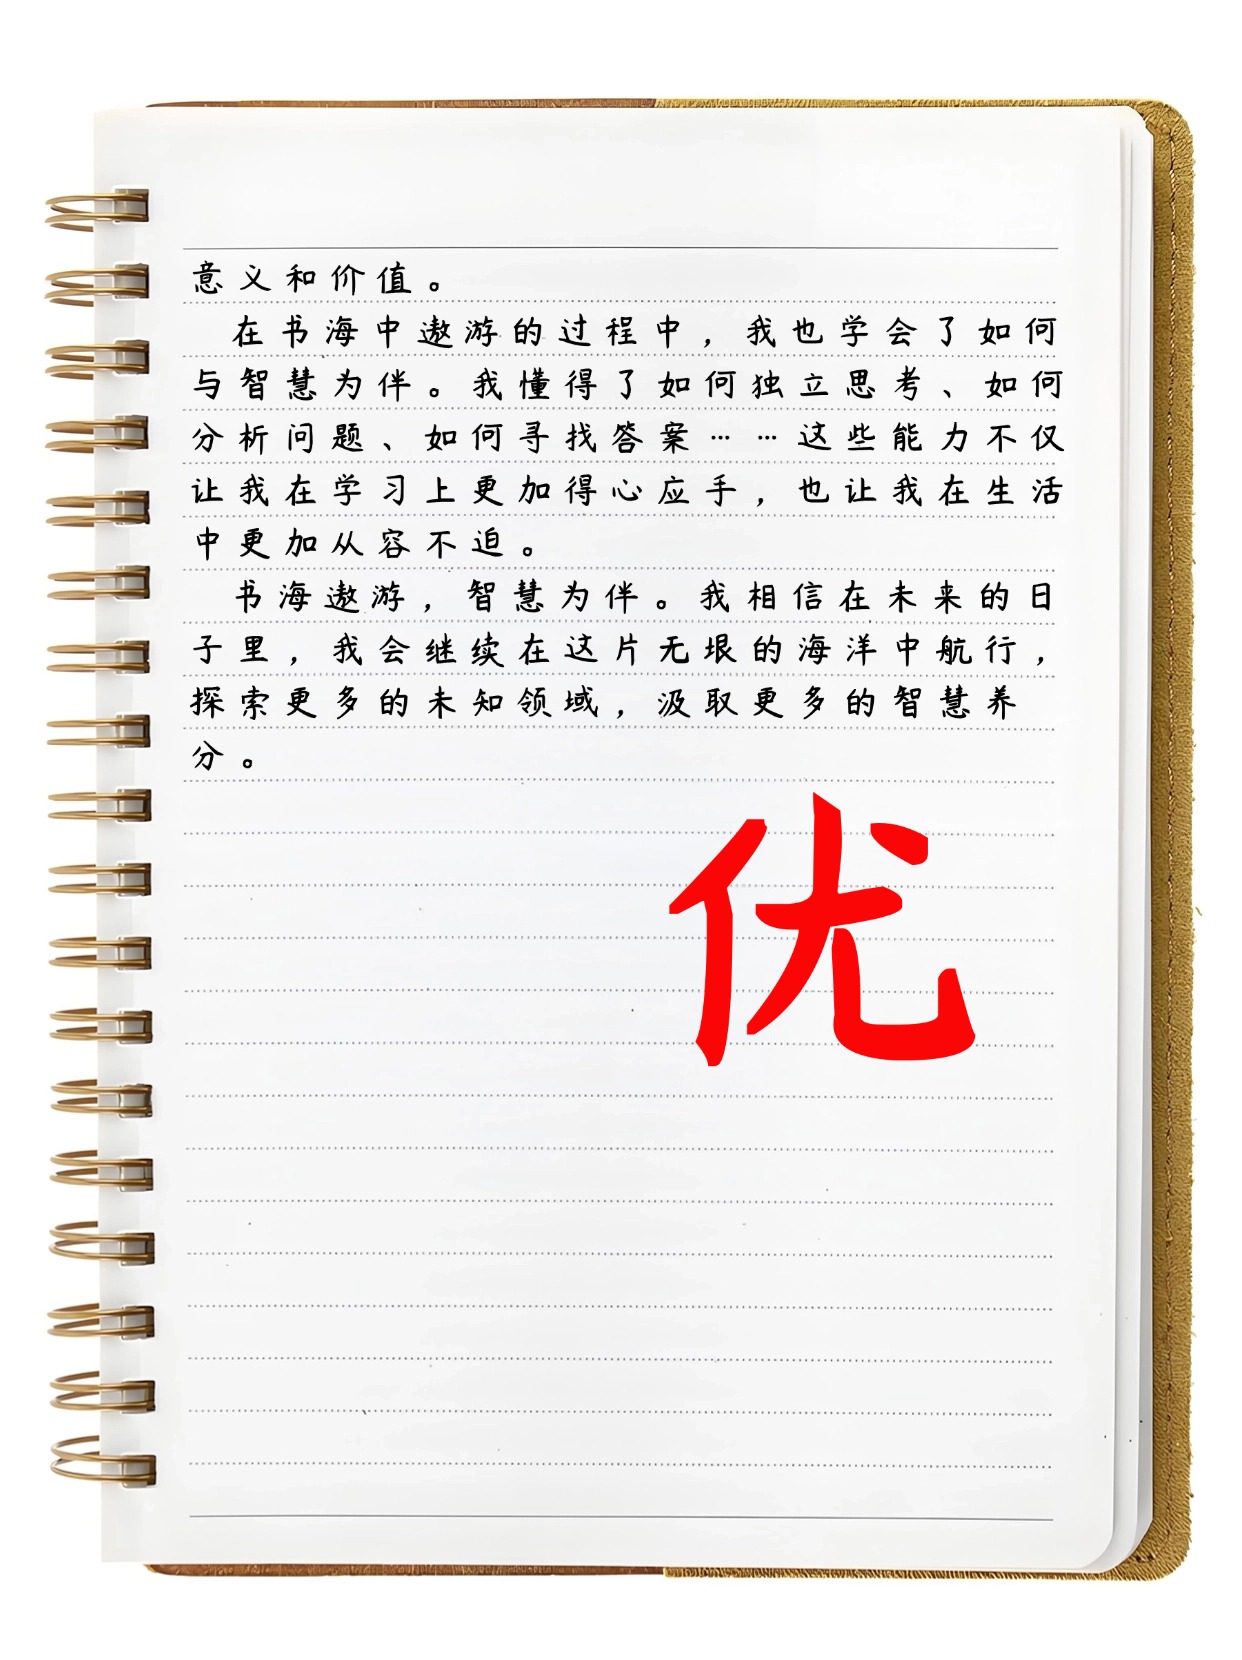 意义和价值。
在书海中遨游的过程中，我也学会了如何
与智慧为伴。我懂得了如何独立思考、如何
分析问题、如何寻找答案……这些能力不仅
让我在学习上更加得心应手，也让我在生活
中更加从容不迫。
书海遨游，智慧为伴。我相信在未来的日
子里，我会继续在这片无垠的海洋中航行，
探索更多的未知领域，汲取更多的智慧养
分。
优